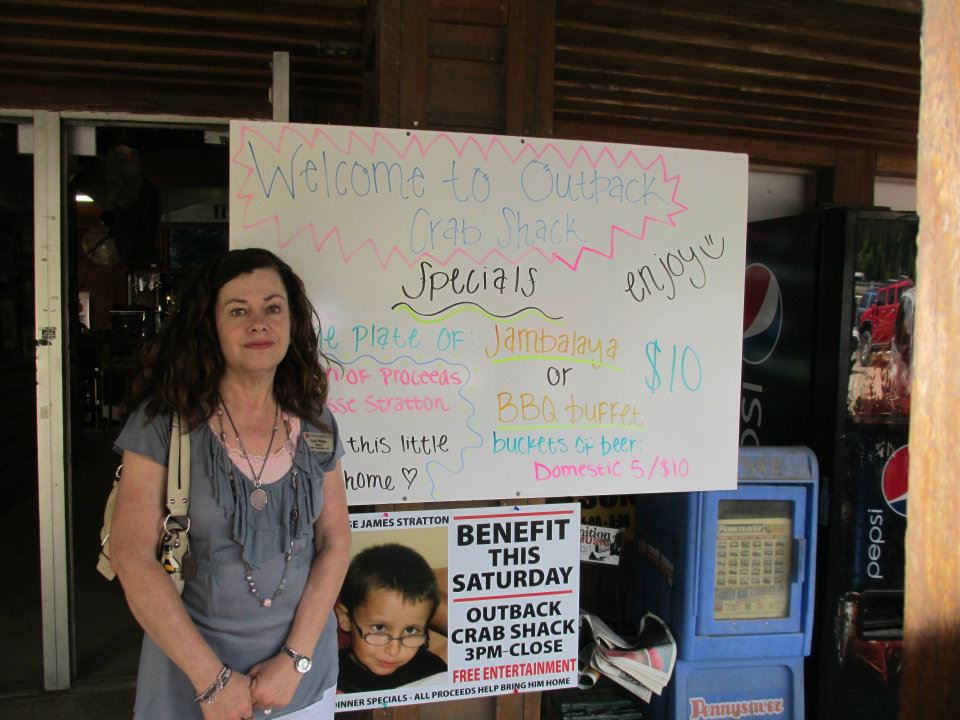 Welcome to Outback
Crab Shack
Specials
enjoy
Plate of: Jambalaya
or
$10
of Proceeds
BBQ buffet
sse Stratton
this little
buckets of beer:
home ♡
Domestic 5/$10
SE JAMES STRATTON
BENEFIT
THIS
SATURDAY
OUTBACK
CRAB SHACK
3PM-CLOSE
FREE ENTERTAINMENT
DINNER SPECIALS - ALL PROCEEDS HELP BRING HIM HOME
PENNYSAVER
Pennysaver
pepsi